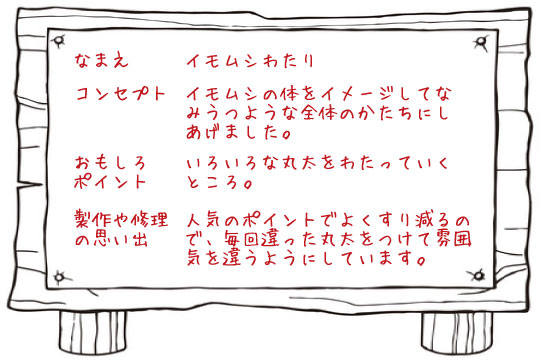 なまえ イモムシわたり
コンセプト イモムシの体をイメージしてな
みうつような全体のかたちにし
あげました。
おもしろ いろいろな丸太をわたっていく
ポイント ところ。
製作や修理 人気のポイントでよくすり減るの
の思い出 で、毎回違った丸太をつけて雰囲
気を違うようにしています。